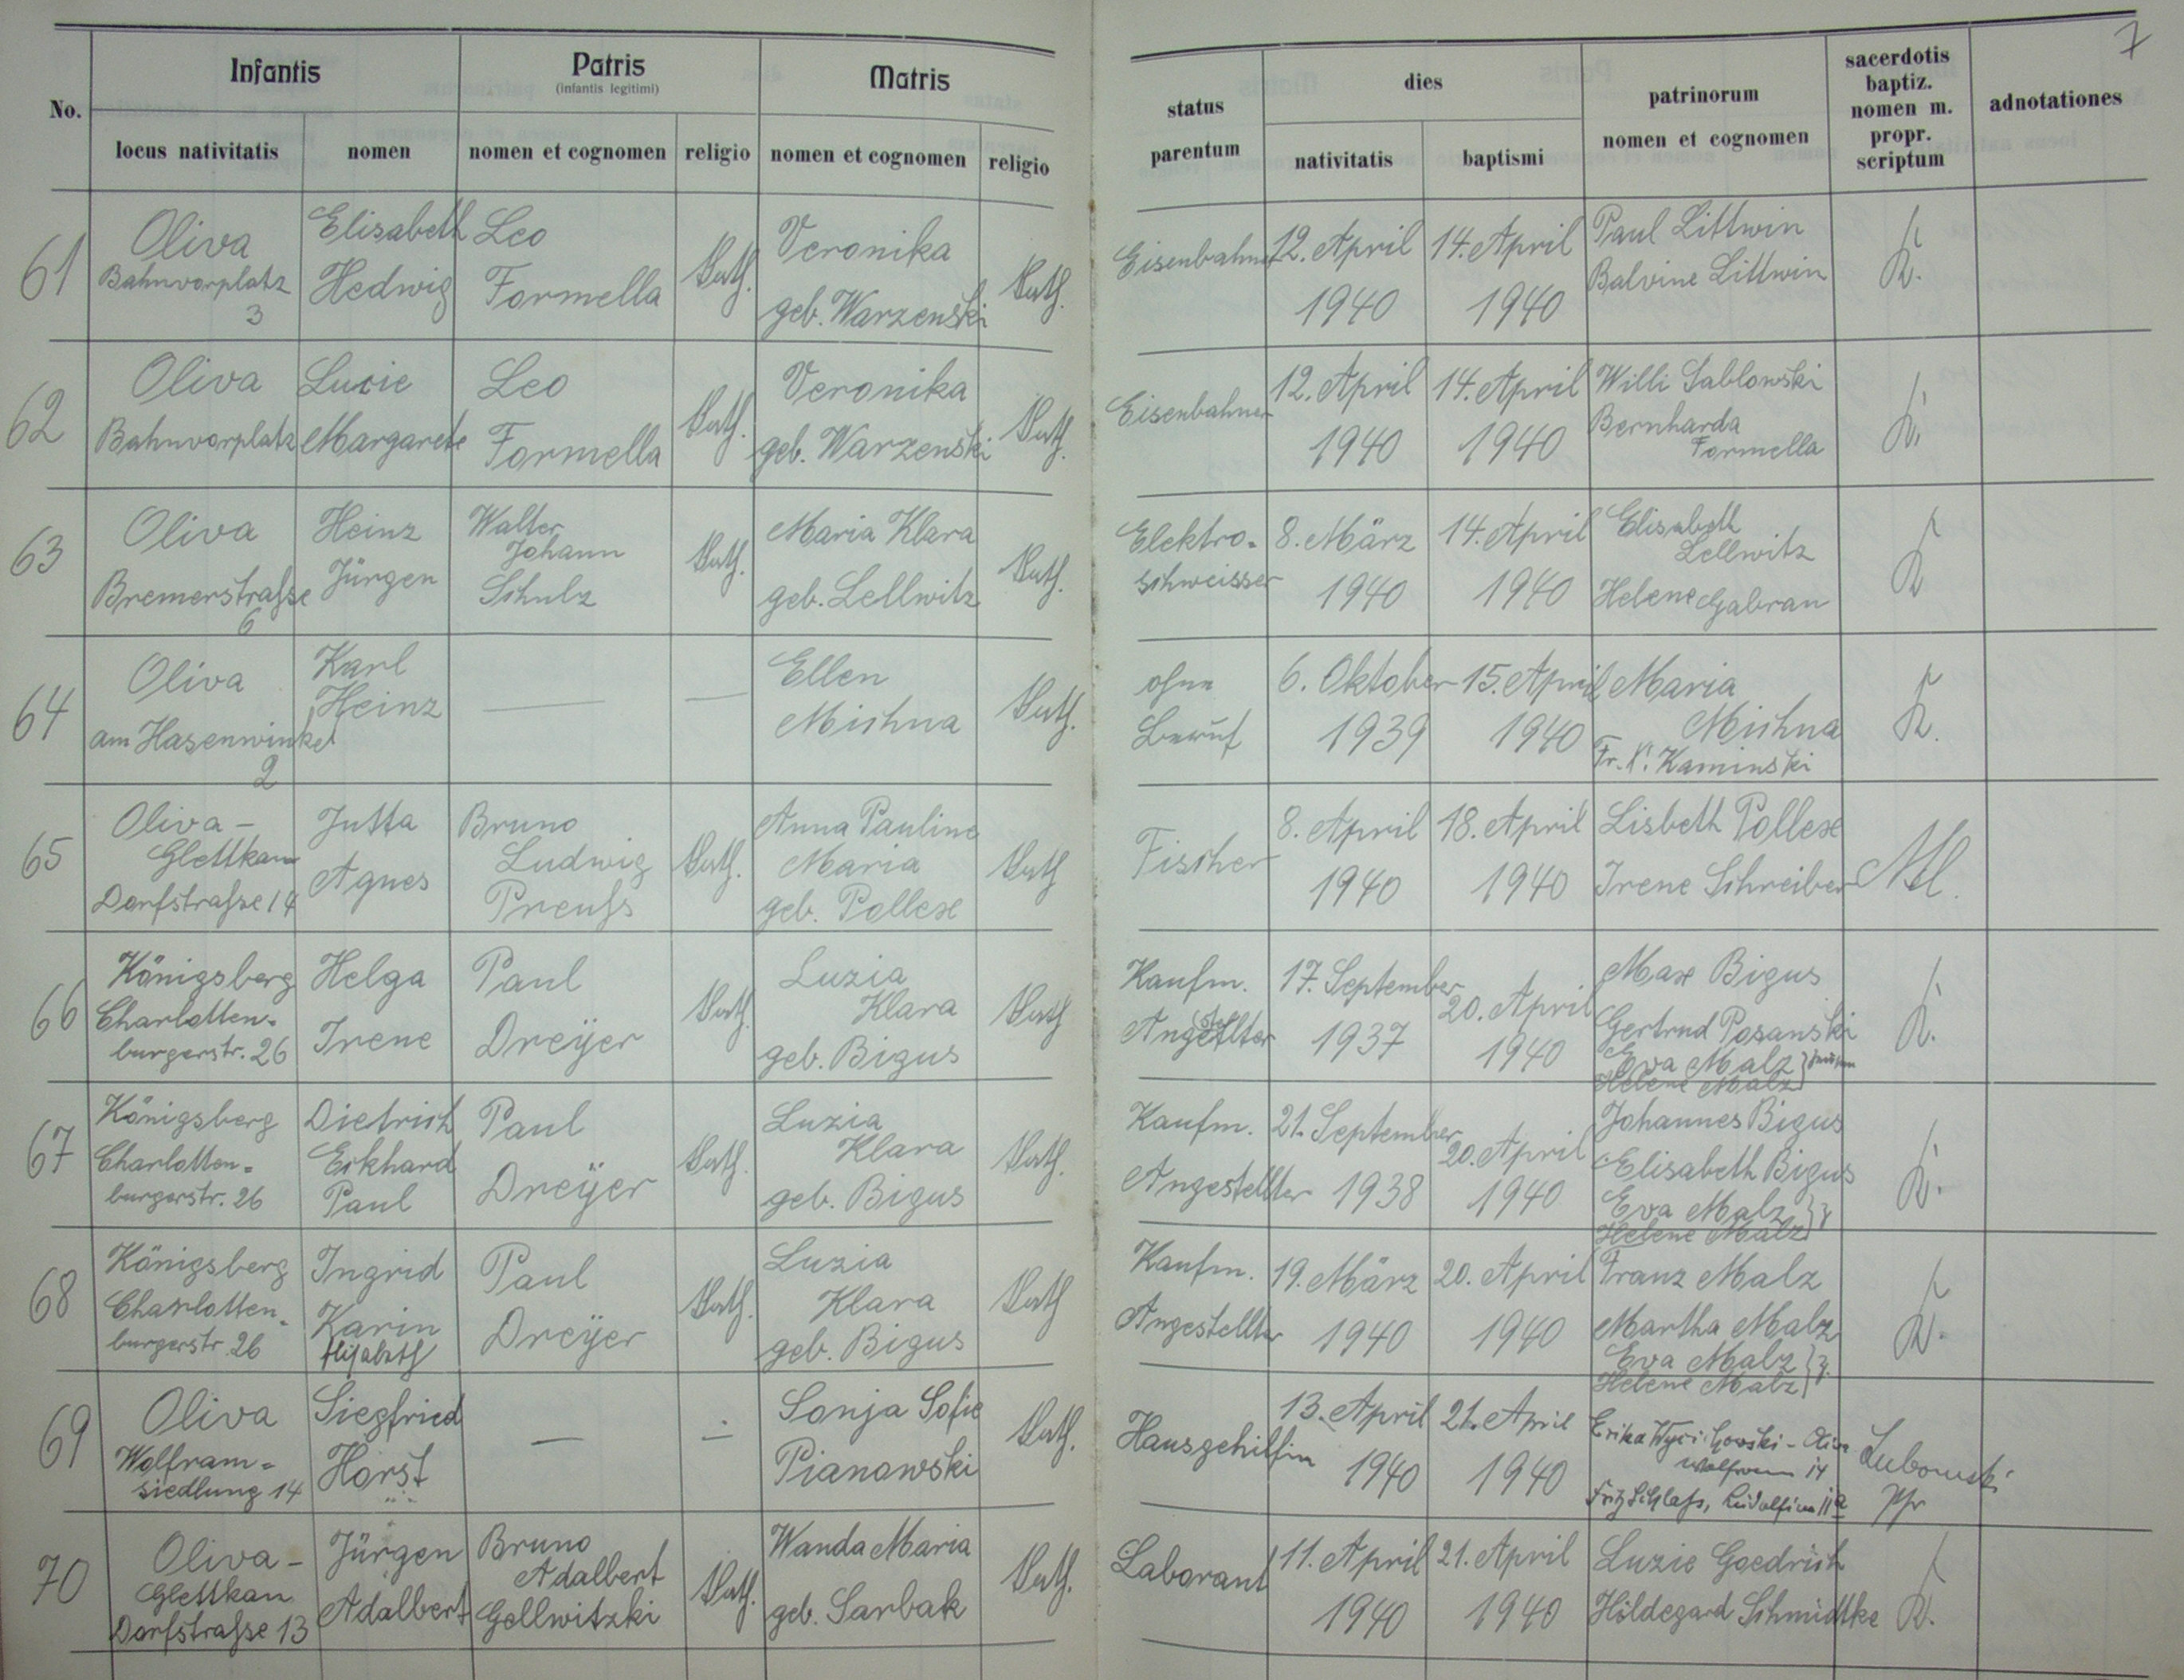 7
No.
Infantis
locus nativitatis
nomen
Patris
(infantis legitimi)
nomen et cognomen
religio
Matris
nomen et cognomen
religio
status
parentum
dies
nativitatis
baptismi
patrinorum
nomen et cognomen
sacerdotis
baptiz.
nomen m.
propr.
scriptum
adnotationes
61
Oliva
Bahnvorplatz
3
Elisabeth
Hedwig
Leo
Formella
kath.
Veronika
geb. Warzenski
kath.
Eisenbahner
12. April
1940
14. April
1940
Paul Littwin
Balvine Littwin
K.
62
Oliva
Bahnvorplatz
Lucie
Margarete
Leo
Formella
kath.
Veronika
geb. Warzenski
kath.
Eisenbahner
12. April
1940
14. April
1940
Willi Sablowski
Bernharda
Formella
K.
63
Oliva
Bremerstraße
6
Heinz
Jürgen
Walter
Johann
Schulz
kath.
Maria Klara
geb. Lellwitz
kath.
Elektro-
schweisser
8. März
1940
14. April
1940
Elisabeth
Lellwitz
Helene Galvran
K
64
Oliva
am Hasenwinkel
2
Karl
Heinz
—
—
Ellen
Mischna
kath.
ohne
Beruf
6. Oktober
1939
15. April
1940
Maria
Mischna
Fr. K. Kaminski
K.
65
Oliva -
Glettkau
Dorfstraße 14
Jutta
Agnes
Bruno
Ludwig
Preuß
kath.
Anna Pauline
Maria
geb. Pollex
kath
Fischer
8. April
1940
18. April
1940
Lisbeth Pollex
Irene Schreiber
66
Königsberg
Charlotten-
burgerstr. 26
Helga
Irene
Paul
Dreÿer
kath.
Luzia
Klara
geb. Bigus
kath
Kaufm.
Angestellter
17. September
1937
20. April
1940
Max Bigus
Gertrud Posanski
Eva Malz
Helene Malz
K.
67
Königsberg
Charlotten-
burgerstr. 26
Dietrich
Eckhard
Paul
Paul
Dreÿer
kath.
Luzia
Klara
geb. Bigus
kath.
Kaufm.
Angestellter
21. September
1938
20. April
1940
Johannes Bigus
Elisabeth Bigus
Eva Malz
Helene Malz
K.
68
Königsberg
Charlotten-
burgerstr. 26
Ingrid
Karin
Elisabeth
Paul
Dreÿer
kath.
Luzia
Klara
geb. Bigus
kath
Kaufm.
Angestellter
19. März
1940
20. April
1940
Franz Malz
Martha Malz
Eva Malz
Helene Malz
K.
69
Oliva
Wolfram-
siedlung 14
Siegfried
Horst
—
—
Sonja Sofie
Pianowski
kath.
Hausgehilfin
13. April
1940
21. April
1940
Erika Wycichowski - Oliva
Wolfram 14
Fritz Schlaß,
Lubowski
Pfr
70
Oliva -
Glettkau
Dorfstraße 13
Jürgen
Adalbert
Bruno
Adalbert
Gellwitzki
kath.
Wanda Maria
geb. Sarbak
kath.
Laborant
11. April
1940
21. April
1940
Luzie Goedrich
Hildegard Schmidtke
K.